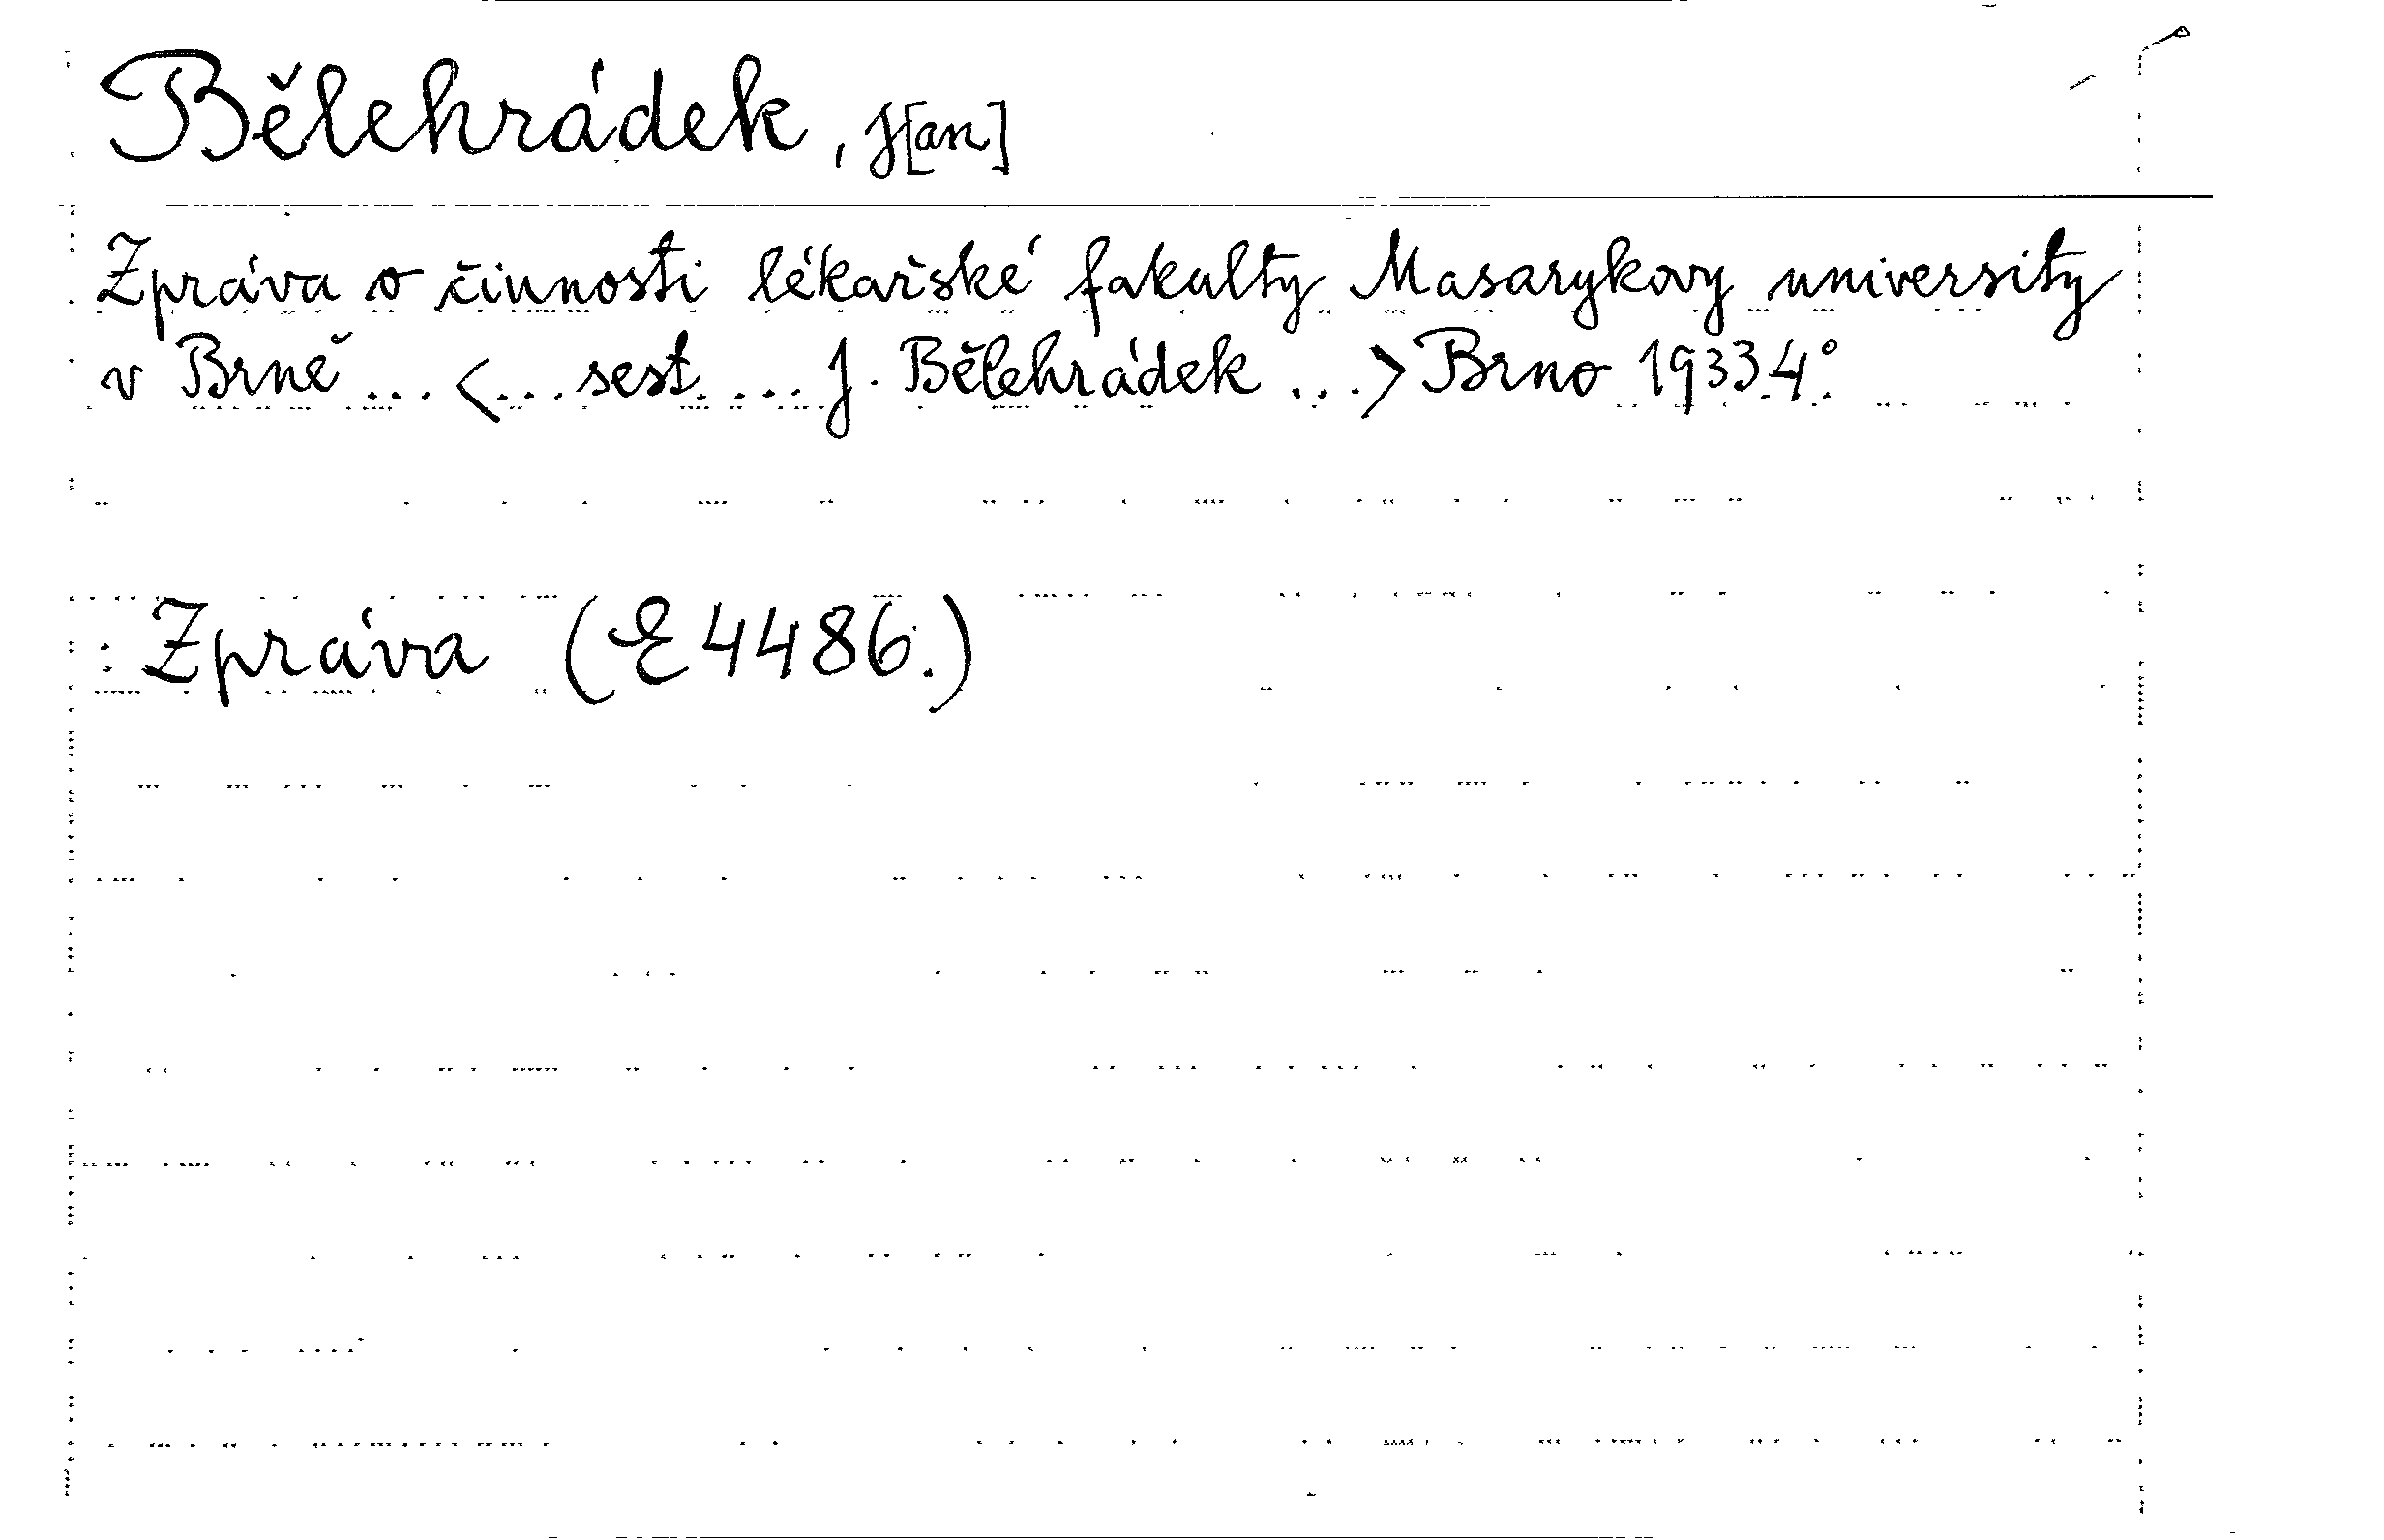 Bělehrádek, J[an]
Zpráva o činnosti lékařské fakulty Masarykovy university
v Brně ... <... sest. ... J. Bělehrádek ...> Brno 1933 4°.
: Zpráva (E 4486.)